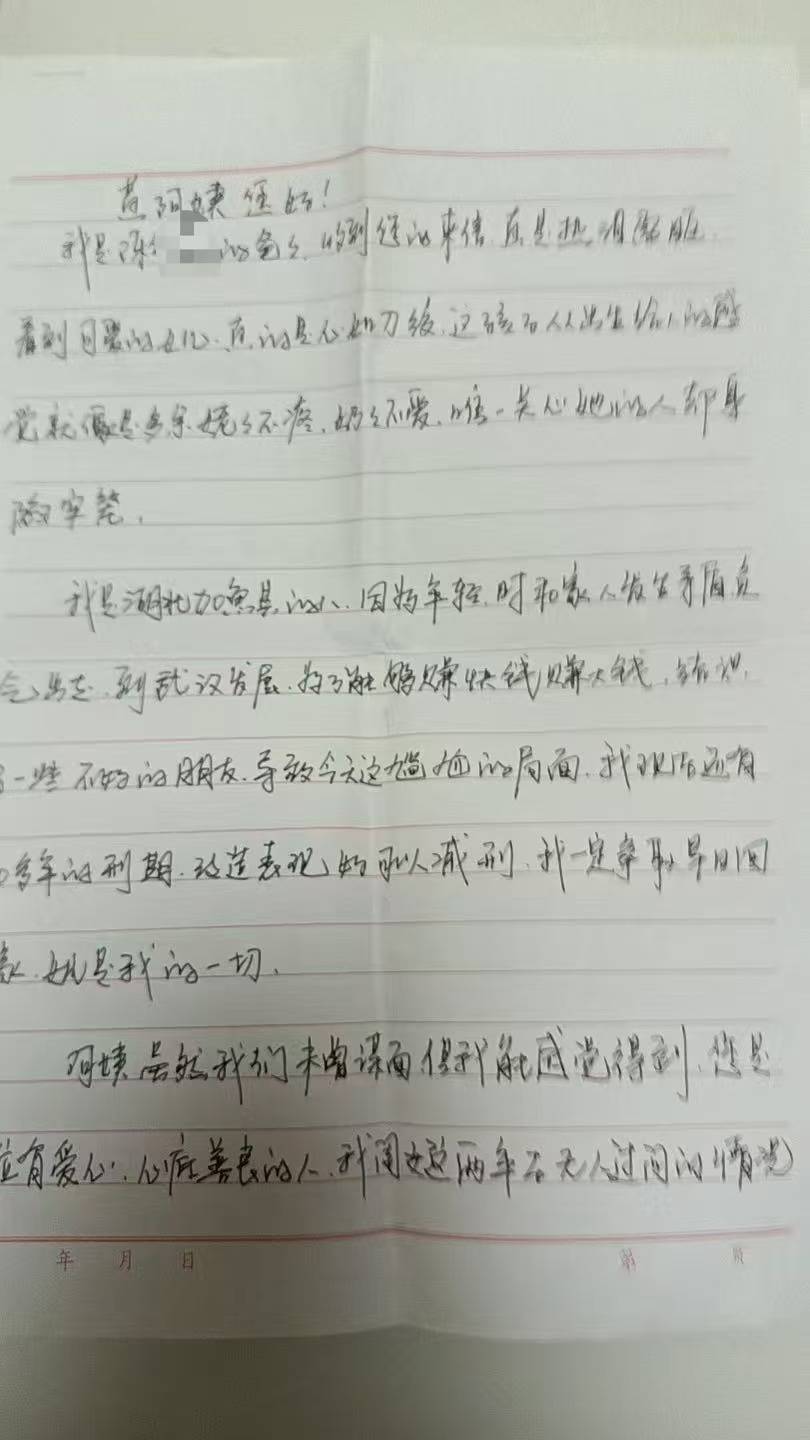 阿姨您好!
我是陈 的爸爸,收到您的来信真是热泪盈眶.
看到可爱的女儿,真的是心如刀绞,这孩子从出生给人的感
觉就像是多余,姥姥不疼,奶奶不爱,唯一关心她的人却身
陷牢笼,
我是湖北加鱼县的人,因为年轻时和家人发生矛盾负
气出走,到武汉发展,为了能够赚快钱赚大钱,结识
一些不好的朋友,导致今天这尴尬的局面,我现在还有
多年的刑期,改造表现好可以减刑,我一定争取早日回
家,女儿是我的一切,
阿姨虽然我们未曾谋面但我能感觉得到,您是
位有爱心,心底善良的人,我闺女这两年在无人过问的情况
年 月 日 第 页